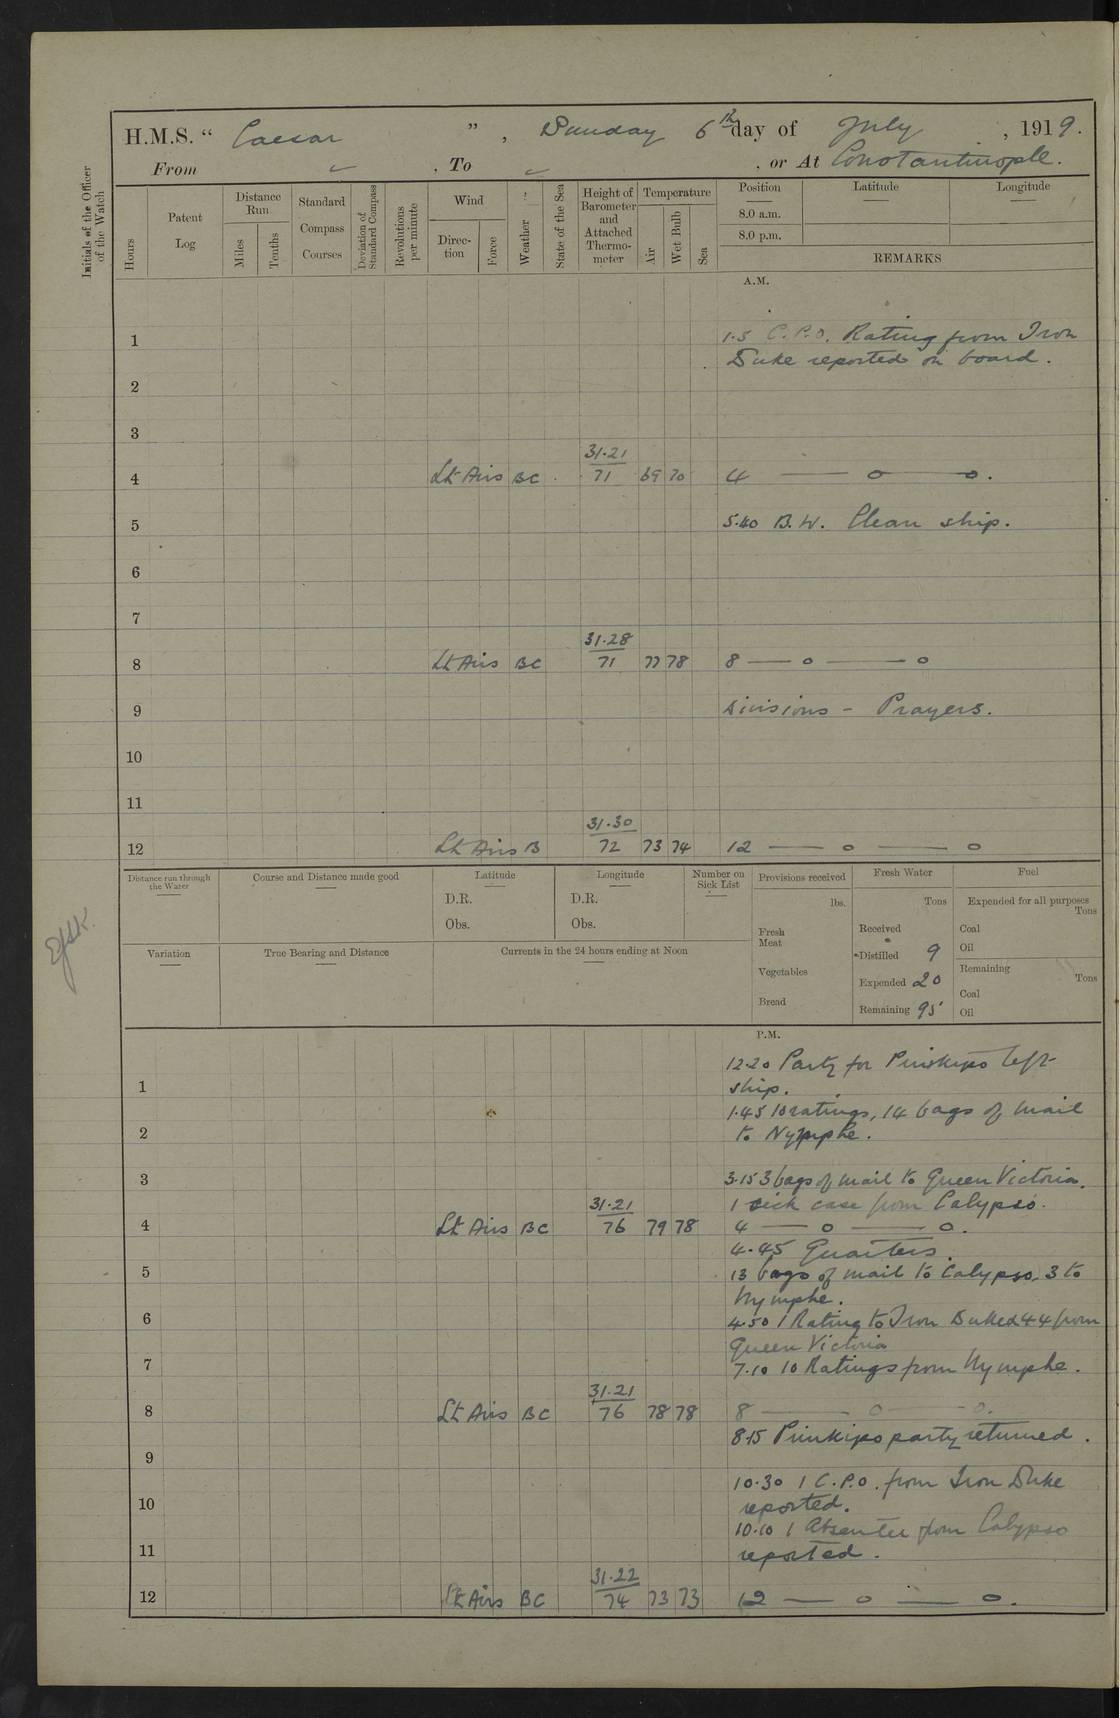 H.M.S. “ Caesar ” , Sunday 6th day of July , 1919.
From ✓ , To ✓ , or At Constantinople.
Initials of the Officer of the Watch
Hours
Patent Log
Distance Run
Miles
Tenths
Standard Compass Courses
Deviation of Standard Compass
Revolutions per minute
Wind
Direc-tion
Force
Weather
State of the Sea
Height of Barometer and Attached Thermo-meter
Temperature
Air
Wet Bulb
Sea
Position Latitude Longitude
8.0 a.m.
8.0 p.m.
REMARKS
A.M.
1 1.5 C.P.O. Rating from Iron
Duke reported on board.
2
3
31.21
4 Lt Airs BC 71 69 70 4 — o — o.
5 5.40 B.W. Clean ship.
6
7
31.28
8 Lt Airs BC 71 77 78 8 — o — o
9 Divisions - Prayers.
10
11
31.30
12 Lt Airs B 72 73 74 12 — o — o
Distance run through the Water
Course and Distance made good
Latitude
D.R.
Obs.
Longitude
D.R.
Obs.
Number on Sick List
Provisions received
lbs.
Fresh Meat
Vegetables
Bread
Fresh Water
Tons
Received
Distilled 9
Expended 20
Remaining 95
Fuel
Expended for all purposes
Tons
Coal
Oil
Remaining
Tons
Coal
Oil
Variation
True Bearing and Distance
Currents in the 24 hours ending at Noon
P.M.
12.20 Party for Prinkipo left
1 ship.
1.45 10 ratings, 14 bags of mail
2 to Nymphe.
3 3.15 3 bags of mail to Queen Victoria.
31.21 1 sick case from Calypso.
4 Lt Airs BC 76 79 78 4 — o — o.
4.45 Quarters.
5 13 bags of mail to Calypso, 3 to
Nymphe.
6 4.50 1 Rating to Iron Duke & 44 from
Queen Victoria
7 7.10 10 Ratings from Nymphe.
31.21
8 Lt Airs BC 76 78 78 8 — o — o.
8.15 Prinkipo party returned.
9
10.30 1 C.P.O. from Iron Duke
10 reported.
10.10 1 Absentee from Calypso
11 reported.
31.22
12 Lt Airs BC 74 73 73 12 — o — o.